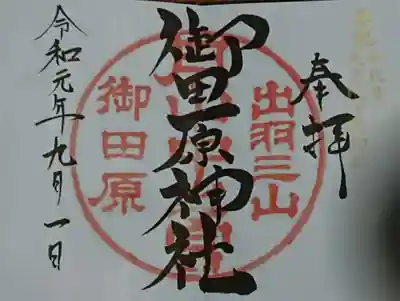 奉拝
出羽三山
御田原神社
御田原
令和元年九月一日